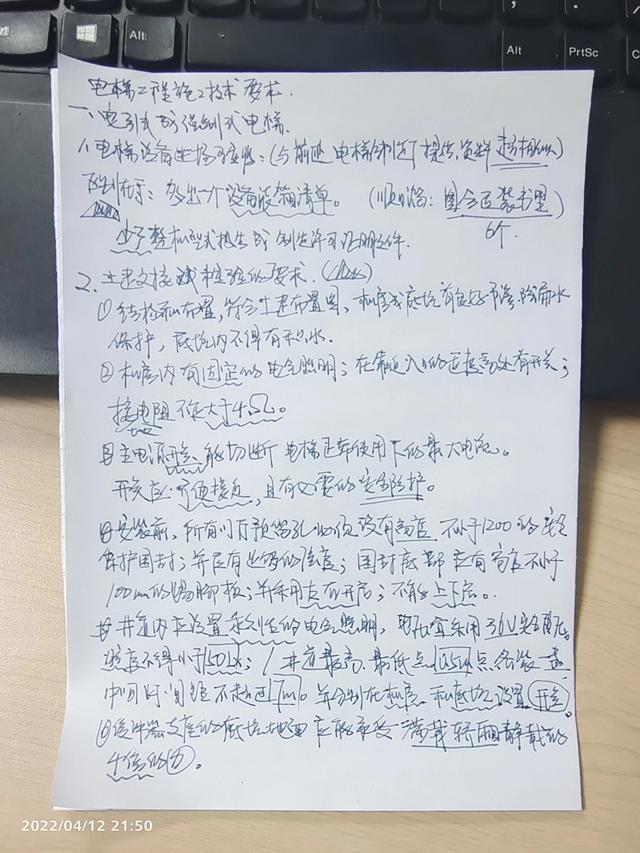 Alt
Alt
PrtSc
电梯工程施工技术要求.
一、电引式或强制式电梯.
1、电梯设备进场验收:(与前述电梯制造厂提供资料
区别在于:多出一个设备装箱清单。(顺口溜:图合正装书型)
6个.
少了整机型式报告或制造许可证明文件.
2.土建交接试检验的要求.
①结构和布置,符合土建布置图,机房或底坑有良好防渗、防漏水
保护,底坑内不得有积水.
②机房内有固定的电气照明;在靠近入口的适当高处有开关;
接地电阻不大于4Ω。
③主电源开关能切断电梯正常使用下的最大电流。
开关应方便接近,且有必要的安全防护。
④安装前,所有厅门预留孔必须设有高度不小于1200的安全
保护围封;并应有足够的强度;围封底部应有高度不小于
100mm的踢脚板;并采用左右开启;不能上下启。
⑤井道内应设置永久性的电气照明,电压宜采用36V安全电压。
照度不得小于50lx;井道最高、最低点0.5m点各装一盏
中间灯间距不超过7m。并分别在机房和底坑设置开关
⑥缓冲器支座的底坑地面应能承受满载轿厢静载的
4倍的力。
2022/04/12 21:50